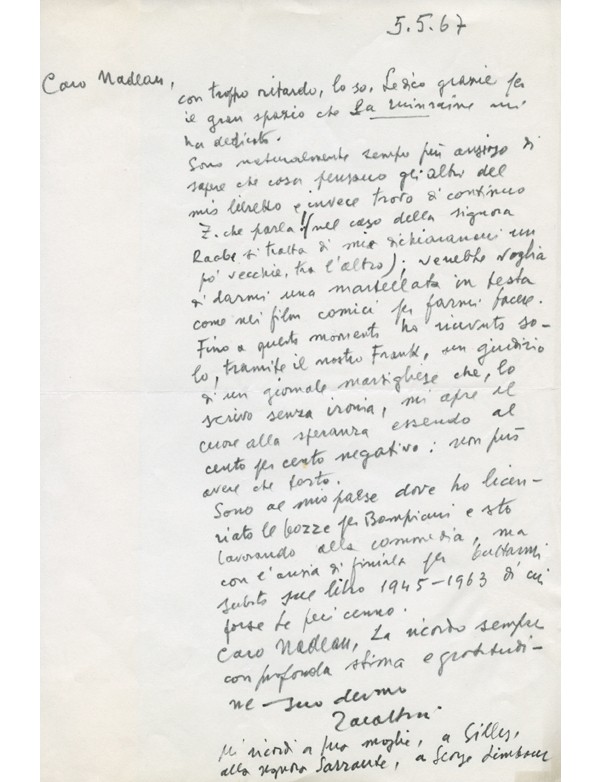 5.5.67
Caro Nadeau,
con troppo ritardo, lo so, Le dico grazie per
il gran spazio che La Quinzaine mi
ha dedicato.
Sono naturalmente sempre più ansioso di
sapere che cosa pensano gli altri del
mio libretto e invece trovo di continuo
Z. che parla (nel caso della signora
Raabe si tratta di mie dichiarazioni un
po' vecchie, tra l'altro); verrebbe voglia
di darmi una martellata in testa
come nei film comici per farmi tacere.
Fino a questo momento ho ricevuto so-
lo, tramite il nostro Frank, un giudizio
di un giornale marsigliese che, lo
scrivo senza ironia, mi apre il
cuore alla speranza essendo al
cento per cento negativo: non può
avere che torto.
Sono al mio paese dove ho licen-
ziato le bozze per Bompiani e sto
lavorando alla commedia, ma
con l'ansia di finirla per buttarmi
subito sul libro 1945-1963 di cui
forse Le feci cenno.
Caro Nadeau, La ricordo sempre
con profonda stima e gratitudi-
ne suo devmo
Zavattini
Mi ricordi a sua moglie, a Gilles,
alla signora Sarraute, a